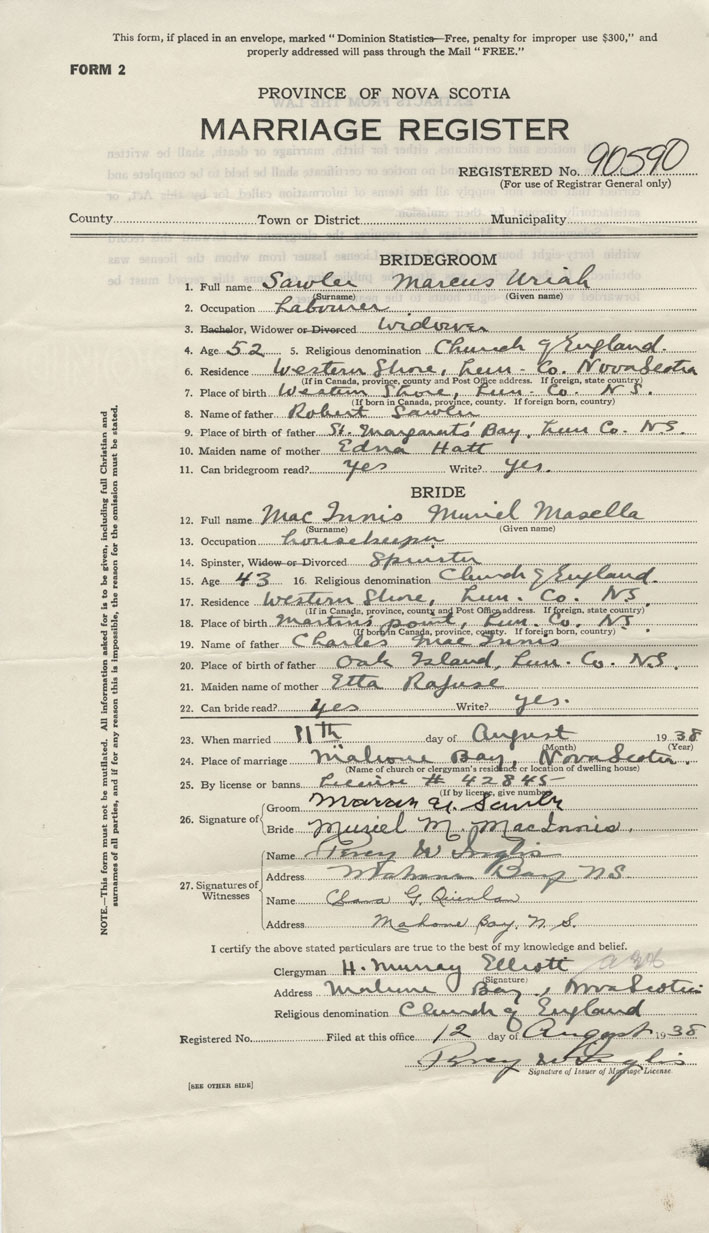 This form, if placed in an envelope, marked "Dominion Statistics—Free, penalty for improper use $300," and
properly addressed will pass through the Mail "FREE."
FORM 2
PROVINCE OF NOVA SCOTIA
MARRIAGE REGISTER
REGISTERED No. 90590
(For use of Registrar General only)
County Town or District Municipality
BRIDEGROOM
1. Full name Sawler Marcus Uriah
(Surname) (Given name)
2. Occupation Labourer
3. Bachelor, Widower or Divorced Widower
4. Age 52 5. Religious denomination Church of England.
6. Residence Western Shore, Lun. Co. Nova Scotia
(If in Canada, province, county and Post Office address. If foreign, state country)
7. Place of birth Western Shore, Lun. Co. N.S.
(If born in Canada, province, county. If foreign born, country)
8. Name of father Robert Sawler
9. Place of birth of father St. Margarets' Bay, Lun Co. N.S.
10. Maiden name of mother Edna Hatt
11. Can bridegroom read? yes Write? yes.
BRIDE
12. Full name MacInnis Muriel Masella
(Surname) (Given name)
13. Occupation housekeeper
14. Spinster, Widow or Divorced Spinster
15. Age 43 16. Religious denomination Church of England.
17. Residence Western Shore, Lun. Co. N.S.
(If in Canada, province, county and Post Office address. If foreign, state country)
18. Place of birth Martins point, Lun. Co. N.S.
(If born in Canada, province, county. If foreign born, country)
19. Name of father Charles MacInnis
20. Place of birth of father Oak Island, Lun. Co. N.S.
21. Maiden name of mother Etta Rafuse
22. Can bride read? yes Write? yes.
23. When married 11th day of August 1938
(Month) (Year)
24. Place of marriage Mahone Bay, Nova Scotia.
(Name of church or clergyman's residence or location of dwelling house)
25. By license or banns License # 42845
(If by license, give number)
26. Signature of
Groom Marcus U. Sawler
Bride Muriel M. MacInnis.
27. Signatures of Witnesses
Name Percy W Inglis
Address Mahone Bay NS
Name Clara G. Quinlan
Address Mahone Bay, N.S.
I certify the above stated particulars are true to the best of my knowledge and belief.
Clergyman H. Murray Elliott
(Signature)
Address Mahone Bay, Nova Scotia
Religious denomination Church of England
Registered No. Filed at this office 12 day of August 1938
Percy W Inglis
Signature of Issuer of Marriage License.
[SEE OTHER SIDE]
NOTE.—This form must not be mutilated. All information asked for is to be given, including full Christian and
surnames of all parties, and if for any reason this is impossible, the reason for the omission must be stated.